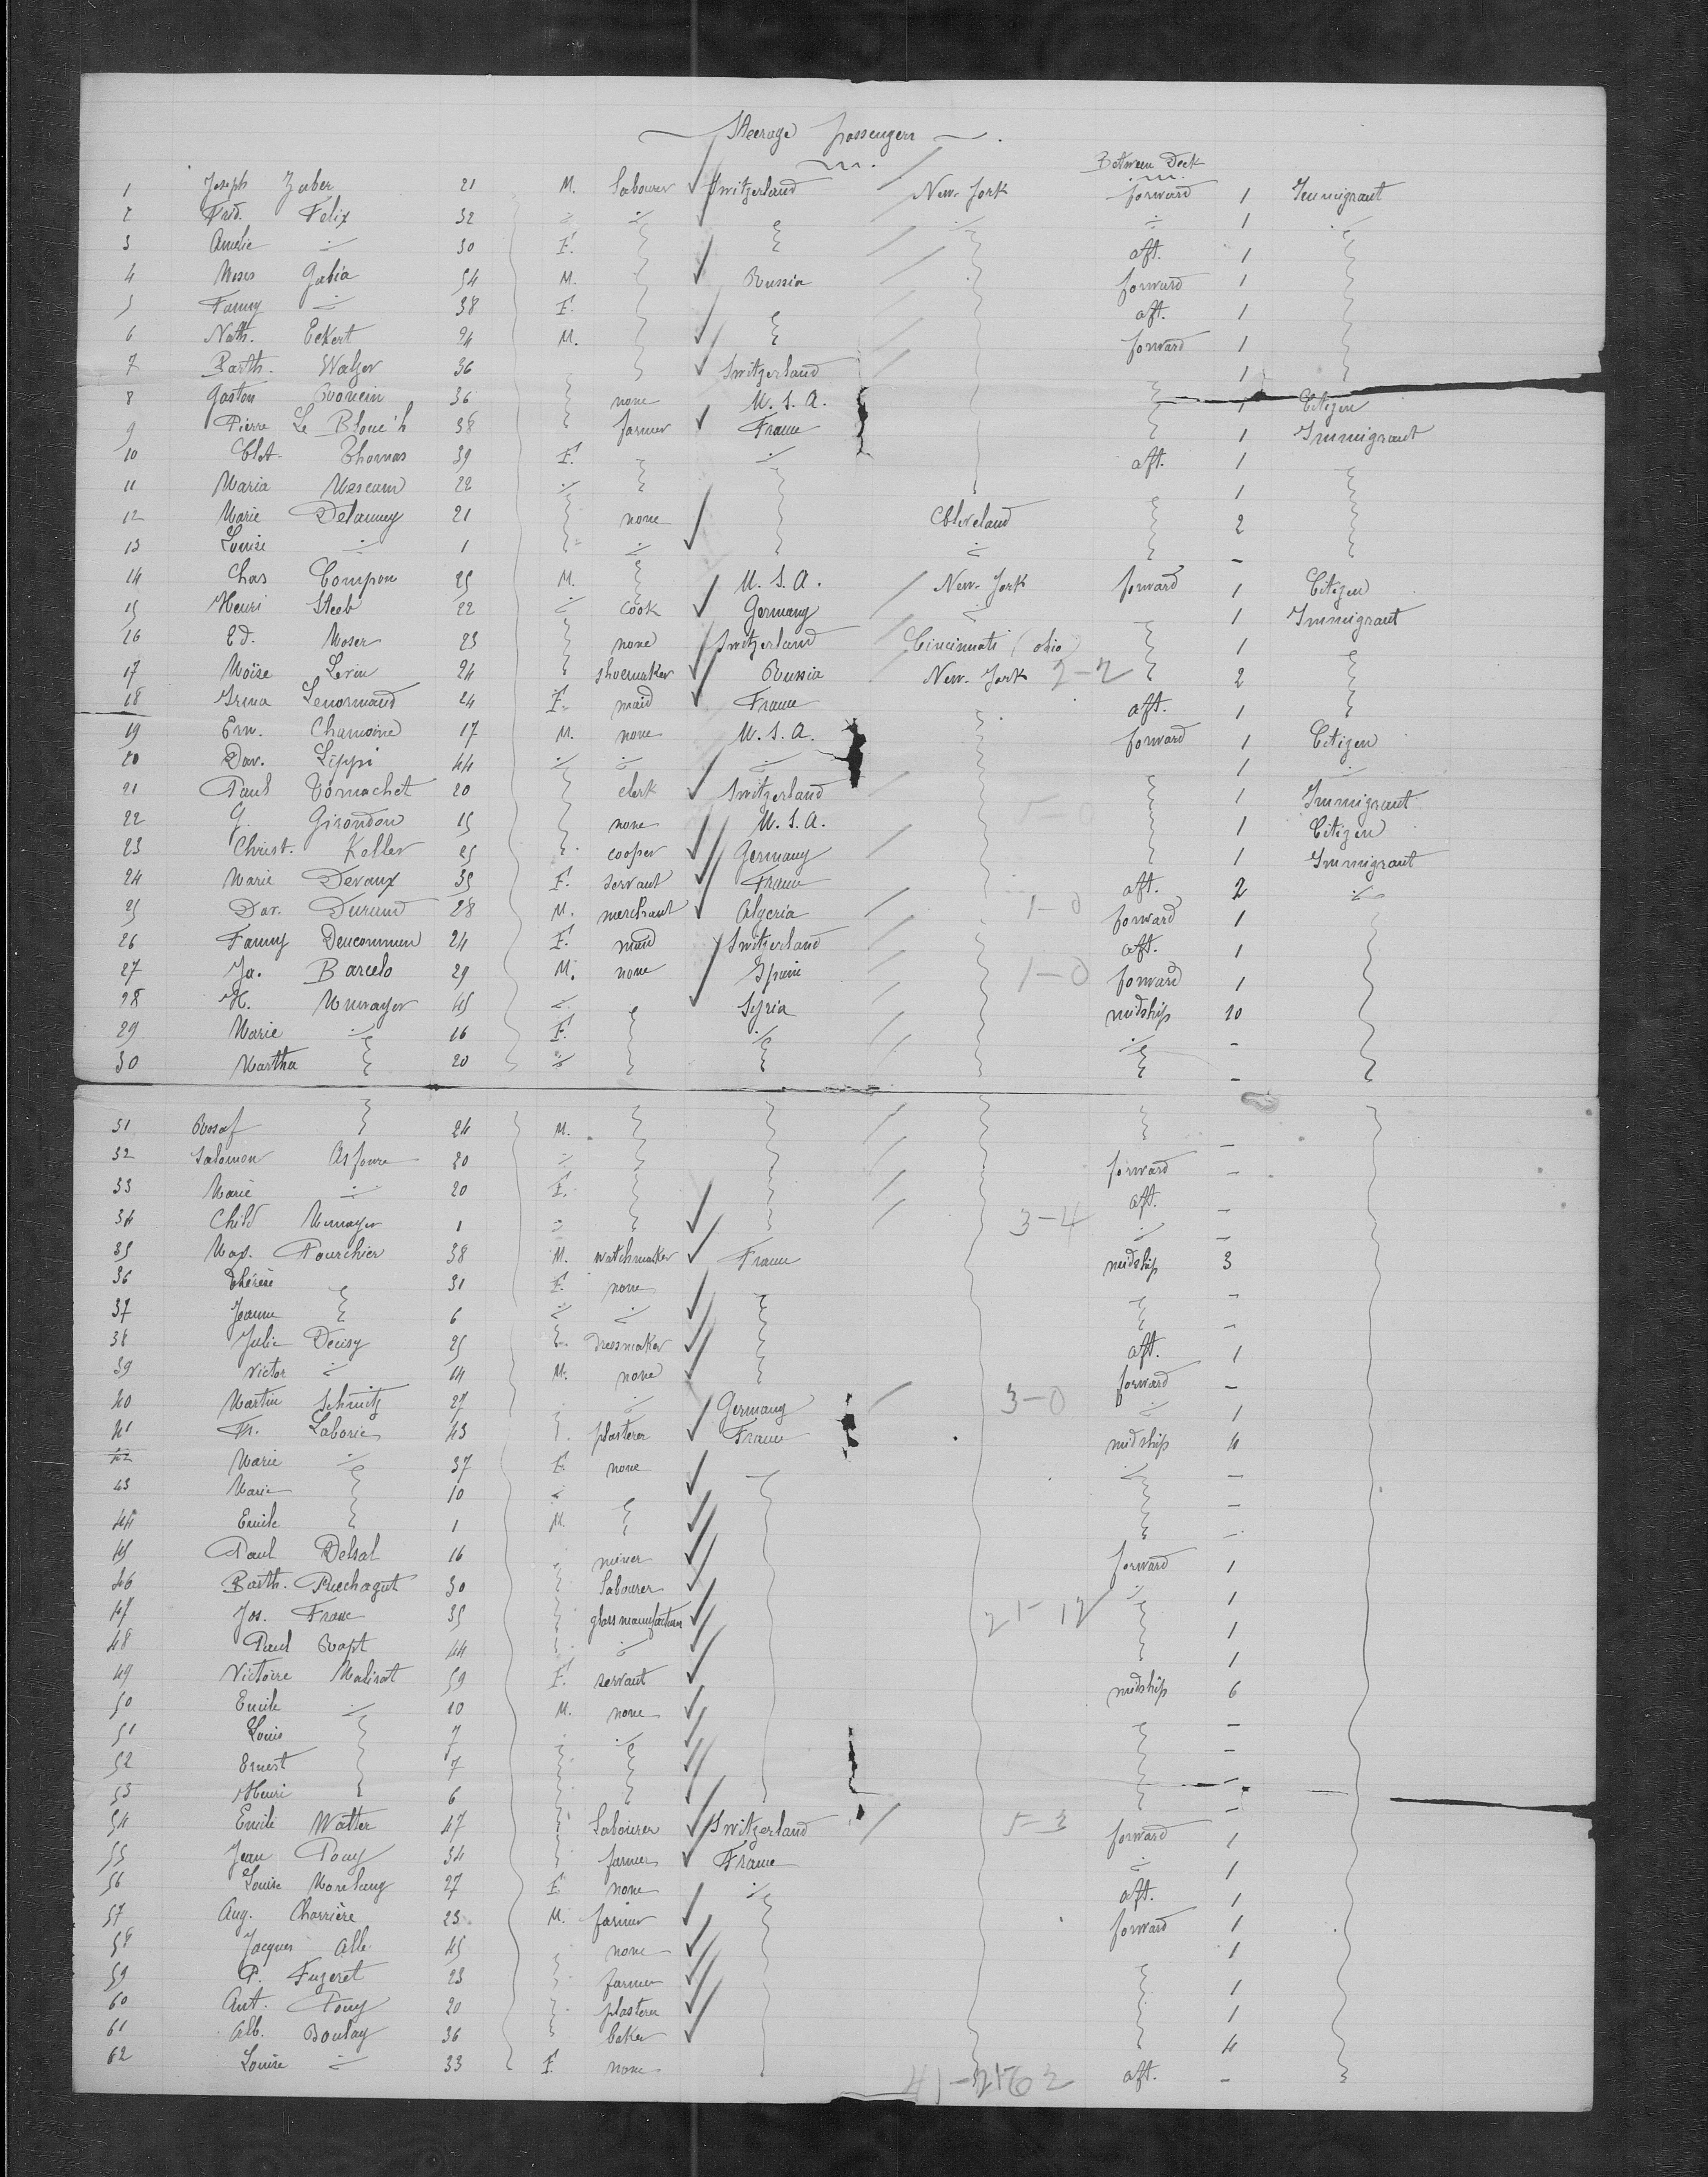 Steerage passengers
Between Deck
1 Joseph Zuber 21 M. Labourer Switzerland New-York forward 1 Immigrant
2 Fred. Felix 32 1
3 Amélie 30 F. aft. 1
4 Moses Gabia 54 M. Russia forward 1
5 Fanny 38 F. aft. 1
6 Nath. Eckert 24 M. forward 1
7 Barth. Walzer 36 Switzerland 1
8 Gaston 36 none U.S.A. 1 Citizen
9 Pierre Le 38 farmer France 1 Immigrant
10 Clot. Thomas 39 F. aft. 1
11 Maria Mescam 22 1
12 Marie Delaunay 21 none Cleveland 2
13 Louise 1 -
14 Chas Compon 25 M. U.S.A. New-York forward 1 Citizen
15 Henri Steeb 22 cook Germany 1 Immigrant
16 Ed. Moser 23 none Switzerland Cincinnati (Ohio) 1
17 Moïse Levin 24 shoemaker Russia New-York 2-2 2
18 Irma Lenormand 24 F. maid France aft. 1
19 Ern. Chamoine 17 M. none U.S.A. forward 1 Citizen
20 Dav. Lippi 44 1
21 Paul 20 clerk Switzerland 1 Immigrant
22 G. Girondon 15 none U.S.A. 1 Citizen
23 Christ. Keller 25 cooper Germany 1 Immigrant
24 Marie Devaux 35 F. servant France aft. 2
25 Dav. Durand 28 M. merchant Algeria 1-0 forward 1
26 Fanny Ducommun 24 F. maid Switzerland aft. 1
27 Ja. Barcelo 29 M. none Spain 1-0 forward 1
28 H. 45 Syria midship 10
29 Marie 16 F. -
30 Martha 20 -
31 24 M. -
32 Salomon Asfoure 20 forward -
33 Marie 20 F. aft. -
34 Child 1 3-4 -
35 Max. Pourchier 38 M. watchmaker France midship 3
36 Thérèse 31 F. none -
37 Jeanne 6 -
38 Julie Denisy 25 dressmaker aft. 1
39 Victor 14 M. none forward -
40 Martin Schmitz 27 Germany 3-0 1
41 Fr. Laborie 43 plasterer France midship 4
42 Marie 37 F. none -
43 Marie 10 -
44 Emile 1 M. -
45 Paul Delsal 16 miner forward 1
46 Barth. Puechagut 30 Labourer 1
47 Jos. Franc 35 glass manufacturer 21-12 1
48 Paul 44 1
49 Victoire Malirat 59 F. servant midship 6
50 Emile 10 M. none -
51 Louis 7 -
52 Ernest 7 -
53 Henri 6 -
54 Emile Walter 47 Labourer Switzerland 5-3 forward 1
55 Jean Pouy 34 farmer France 1
56 Louise 27 F. none aft. 1
57 Aug. Charrière 23 M. farmer forward 1
58 Jacques Alb. 45 none 1
59 P. Fuzeret 23 farmer 1
60 Ant. Pouy 20 plasterer 1
61 Alb. Boulay 36 baker 4
62 Louise 33 F. none aft. -